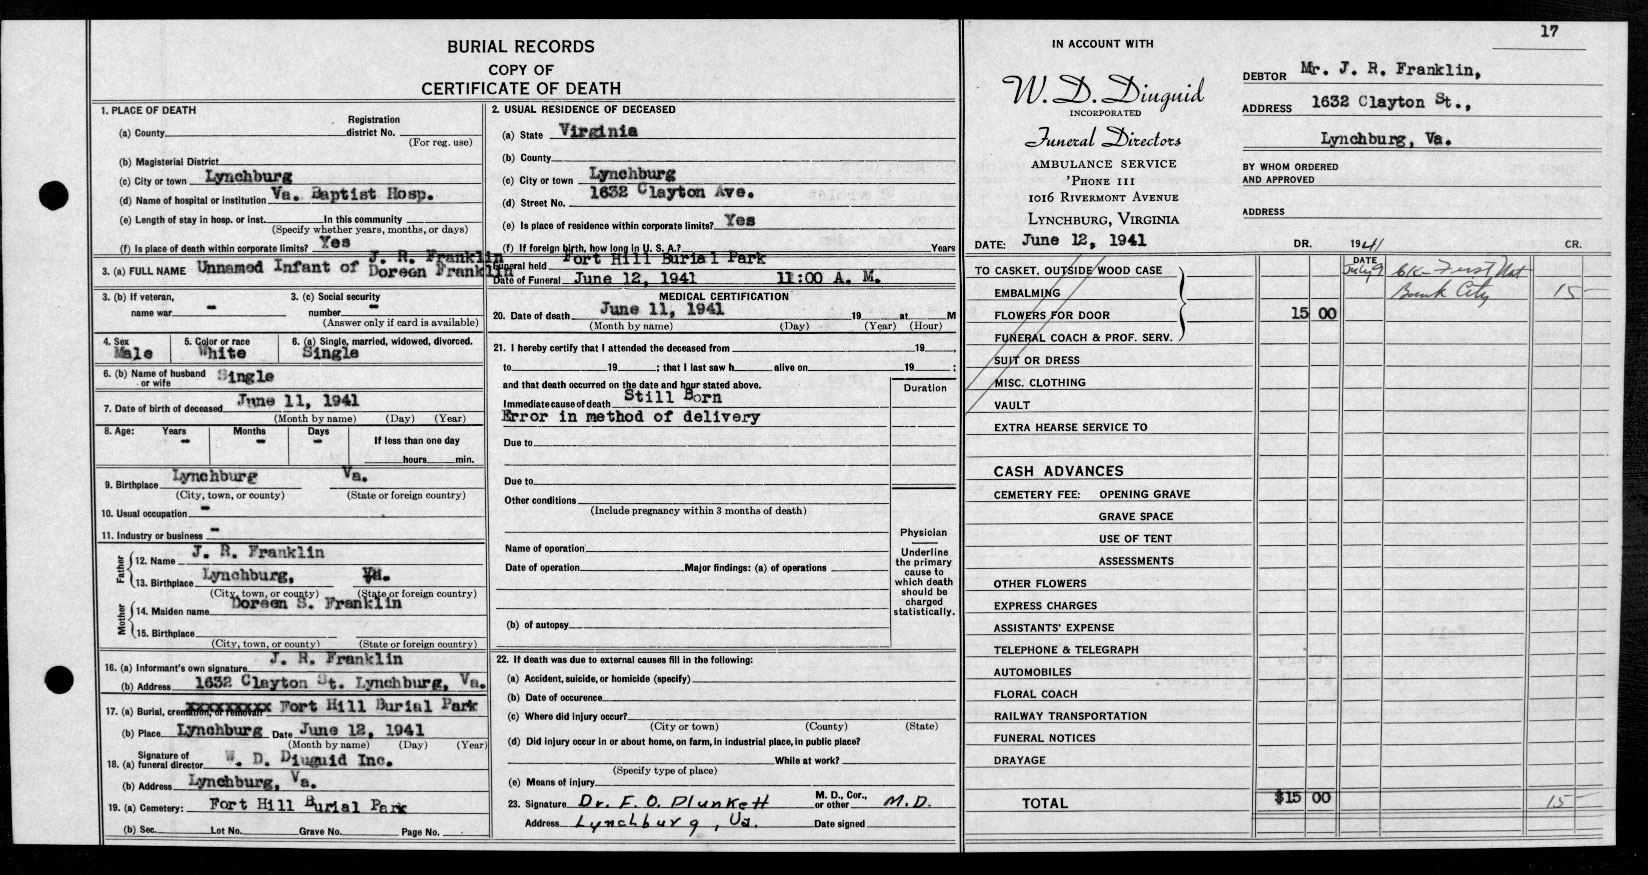 BURIAL RECORDS
COPY OF
CERTIFICATE OF DEATH
1. PLACE OF DEATH
(a) County
Registration district No.
(For reg. use)
(b) Magisterial District
(c) City or town Lynchburg
(d) Name of hospital or institution Va. Baptist Hosp.
(e) Length of stay in hosp. or inst. In this community
(Specify whether years, months, or days)
(f) Is place of death within corporate limits? Yes
3. (a) FULL NAME Unnamed Infant of J. R. Franklin
Doreen Franklin
3. (b) If veteran, name war -
3. (c) Social security number -
(Answer only if card is available)
4. Sex Male
5. Color or race White
6. (a) Single, married, widowed, divorced. Single
6. (b) Name of husband or wife Single
7. Date of birth of deceased June 11, 1941
(Month by name) (Day) (Year)
8. Age: Years - Months - Days -
If less than one day
hours min.
9. Birthplace Lynchburg Va.
(City, town, or county) (State or foreign country)
10. Usual occupation -
11. Industry or business -
Father
12. Name J. R. Franklin
13. Birthplace Lynchburg, Va.
(City, town, or county) (State or foreign country)
Mother
14. Maiden name Doreen S. Franklin
15. Birthplace
(City, town, or county) (State or foreign country)
16. (a) Informant's own signature J. R. Franklin
(b) Address 1632 Clayton St. Lynchburg, Va.
17. (a) Burial, cremation, or removal xxxxxxxxx Fort Hill Burial Park
(b) Place Lynchburg Date June 12, 1941
(Month by name) (Day) (Year)
18. (a) Signature of funeral director W. D. Diuguid Inc.
(b) Address Lynchburg, Va.
19. (a) Cemetery: Fort Hill Burial Park
(b) Sec. Lot No. Grave No. Page No.
2. USUAL RESIDENCE OF DECEASED
(a) State Virginia
(b) County
(c) City or town Lynchburg
(d) Street No. 1632 Clayton Ave.
(e) Is place of residence within corporate limits? Yes
(f) If foreign birth, how long in U. S. A.? Years
Funeral held Fort Hill Burial Park
Date of Funeral June 12, 1941 11:00 A. M.
MEDICAL CERTIFICATION
20. Date of death June 11, 1941 19 at M
(Month by name) (Day) (Year) (Hour)
21. I hereby certify that I attended the deceased from 19 ,
to 19 ; that I last saw h alive on 19 ;
and that death occurred on the date and hour stated above.
Duration
Immediate cause of death Still Born
Error in method of delivery
Due to
Due to
Other conditions
(Include pregnancy within 3 months of death)
Name of operation
Date of operation Major findings: (a) of operations
(b) of autopsy
Physician
Underline
the primary
cause to
which death
should be
charged
statistically.
22. If death was due to external causes fill in the following:
(a) Accident, suicide, or homicide (specify)
(b) Date of occurence
(c) Where did injury occur?
(City or town) (County) (State)
(d) Did injury occur in or about home, on farm, in industrial place, in public place?
While at work?
(Specify type of place)
(e) Means of injury
23. Signature Dr. F. O. Plunkett M. D., Cor., or other M.D.
Address Lynchburg, Va. Date signed
17
IN ACCOUNT WITH
W. D. Diuguid
INCORPORATED
Funeral Directors
AMBULANCE SERVICE
'PHONE 111
1016 RIVERMONT AVENUE
LYNCHBURG, VIRGINIA
DEBTOR Mr. J. R. Franklin,
ADDRESS 1632 Clayton St.,
Lynchburg, Va.
BY WHOM ORDERED
AND APPROVED
ADDRESS
DATE: June 12, 1941 DR. 1941 CR.
DATE
TO CASKET, OUTSIDE WOOD CASE July 9 CK- First Nat
EMBALMING Bank City 15-
FLOWERS FOR DOOR 15 00
FUNERAL COACH & PROF. SERV.
SUIT OR DRESS
MISC. CLOTHING
VAULT
EXTRA HEARSE SERVICE TO
CASH ADVANCES
CEMETERY FEE: OPENING GRAVE
GRAVE SPACE
USE OF TENT
ASSESSMENTS
OTHER FLOWERS
EXPRESS CHARGES
ASSISTANTS' EXPENSE
TELEPHONE & TELEGRAPH
AUTOMOBILES
FLORAL COACH
RAILWAY TRANSPORTATION
FUNERAL NOTICES
DRAYAGE
TOTAL $15 00 15-